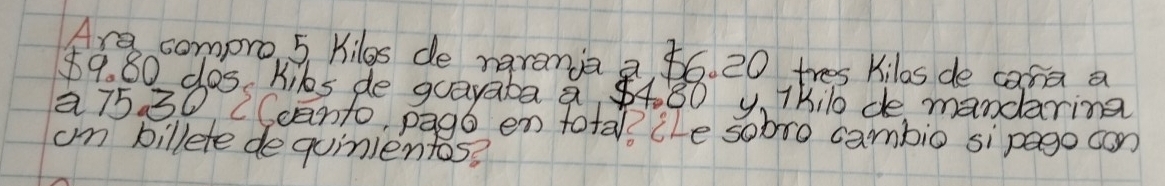 Ara compro 5 Kilos de naranja a $6.20 tres Kilos de caña a
$9.80 dos Kilos de guayaba a $4.80 y 1Kilo de mandarina
a 75.30 ¿Ccanto pago en total? ¿Le sobro cambio si pago con
un billete de quinientos?